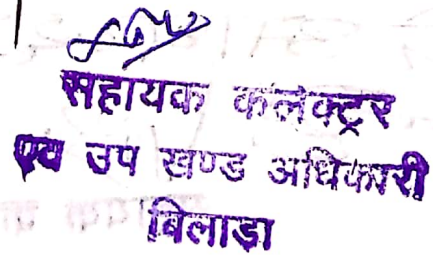 सहायक कलेक्ट्रर
एवं उप खण्ड अधिकारी
बिलाड़ा